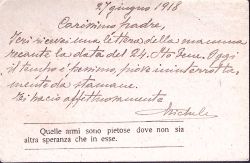 27 giugno 1918
Carissimo Padre,
Ieri ricevei una lettera della mamma
recante la data del 24. Sto bene. Oggi
il tempo è pessimo, piove ininterrotta
mente da stamane.
Vi bacio affettuosamente
Michele
Quelle armi sono pietose dove non sia
altra speranza che in esse.